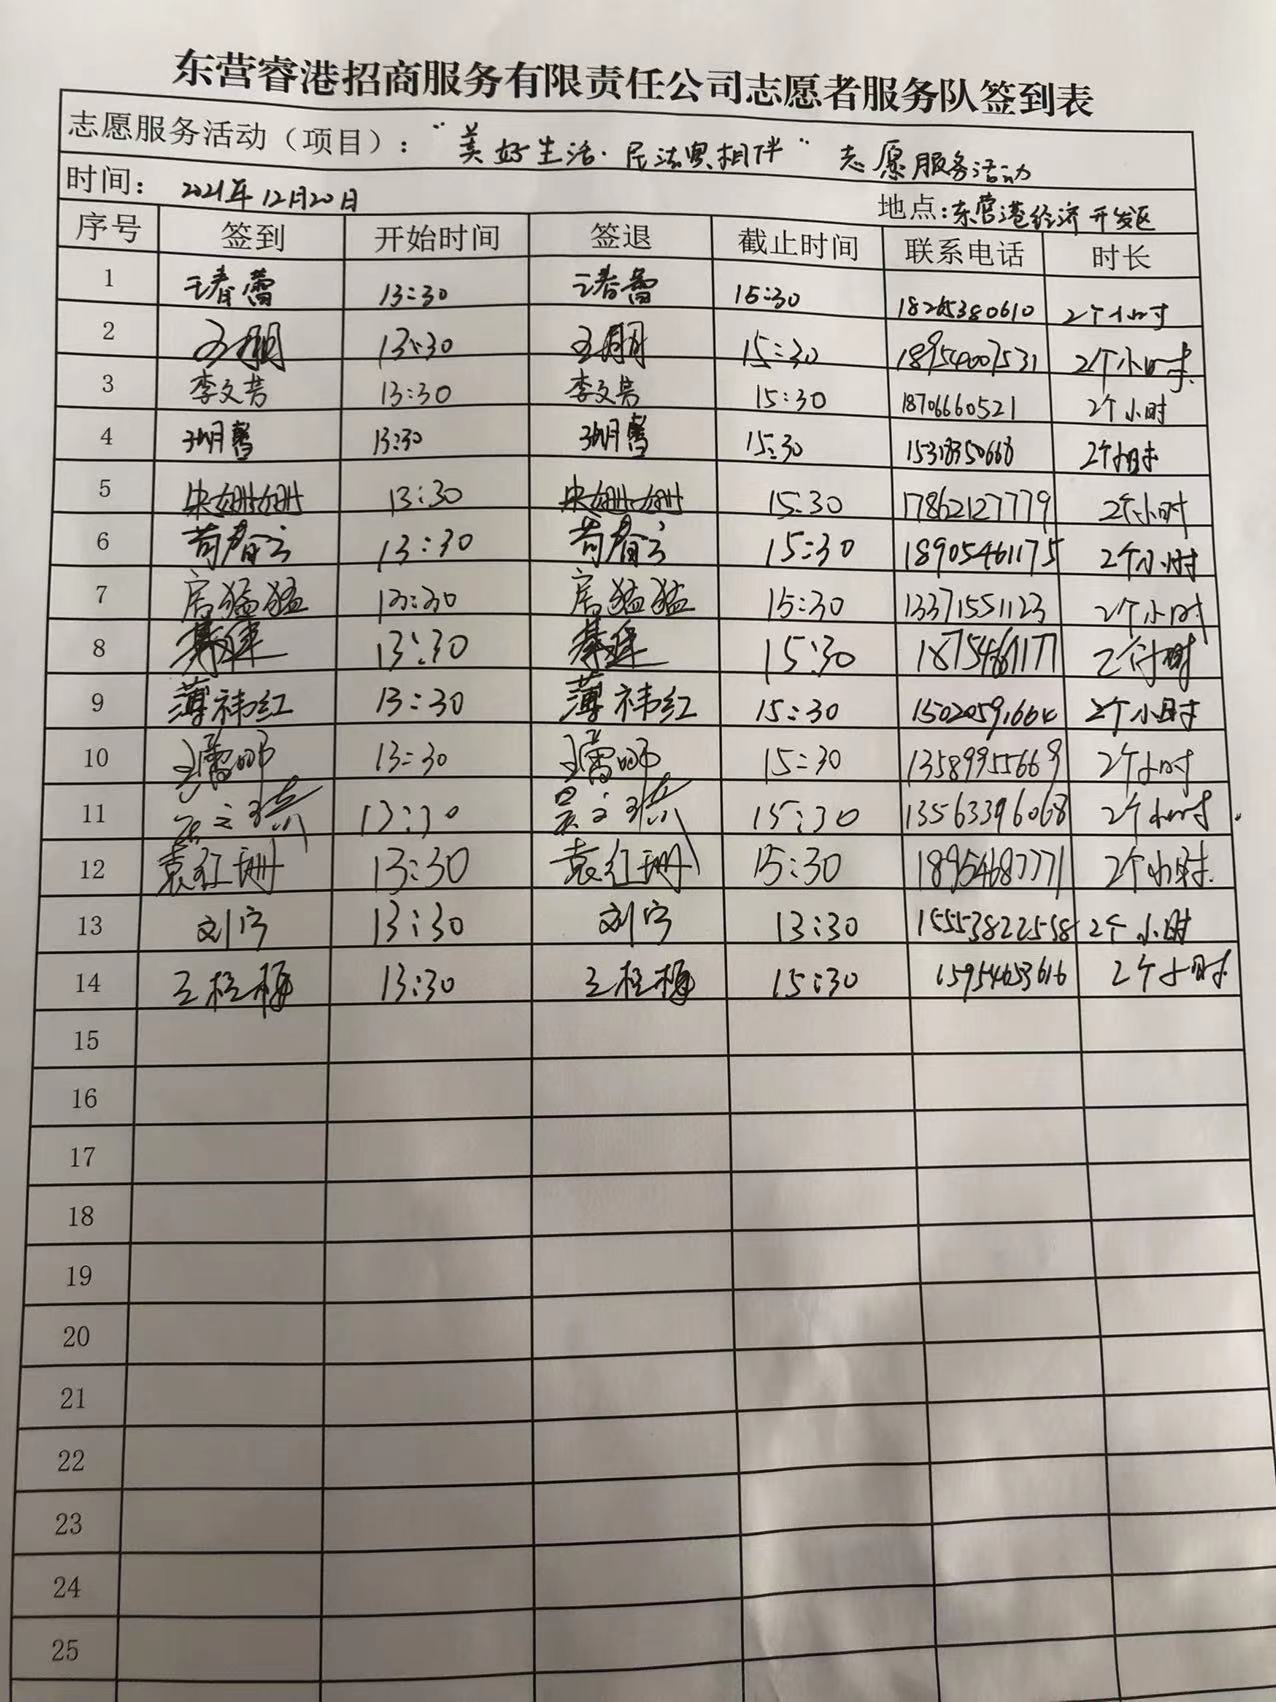 东营睿港招商服务有限责任公司志愿者服务队签到表
志愿服务活动（项目）："美好生活·民法典相伴"志愿服务活动
时间：2021年12月20日 地点：东营港经济开发区
序号 签到 开始时间 签退 截止时间 联系电话 时长
1 王春蕾 13:30 王春蕾 15:30 18265380610 2个小时
2 王朋 13:30 王朋 15:30 18954007531 2个小时
3 李文芳 13:30 李文芳 15:30 18706660521 2个小时
4 13:30 15:30 15318350668 2个小时
5 姗姗 13:30 姗姗 15:30 17862127779 2个小时
6 苟春云 13:30 苟春云 15:30 18905461175 2个小时
7 房猛猛 13:30 房猛猛 15:30 13371551123 2个小时
8 13:30 15:30 2个小时
9 薄祎红 13:30 薄祎红 15:30 15020591664 2个小时
10 13:30 15:30 13589955669 2个小时
11 13:30 吴 15:30 13563396068 2个小时.
12 袁红珊 13:30 袁红珊 15:30 18954687771 2个小时.
13 刘宁 13:30 刘宁 13:30 15553822558 2个小时
14 王桂梅 13:30 王桂梅 15:30 15954653616 2个小时
15
16
17
18
19
20
21
22
23
24
25